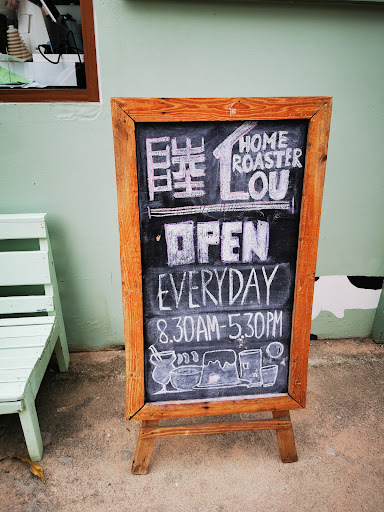 陸 HOME
ROASTER
LOU
OPEN
EVERYDAY
8.30AM-5.30PM